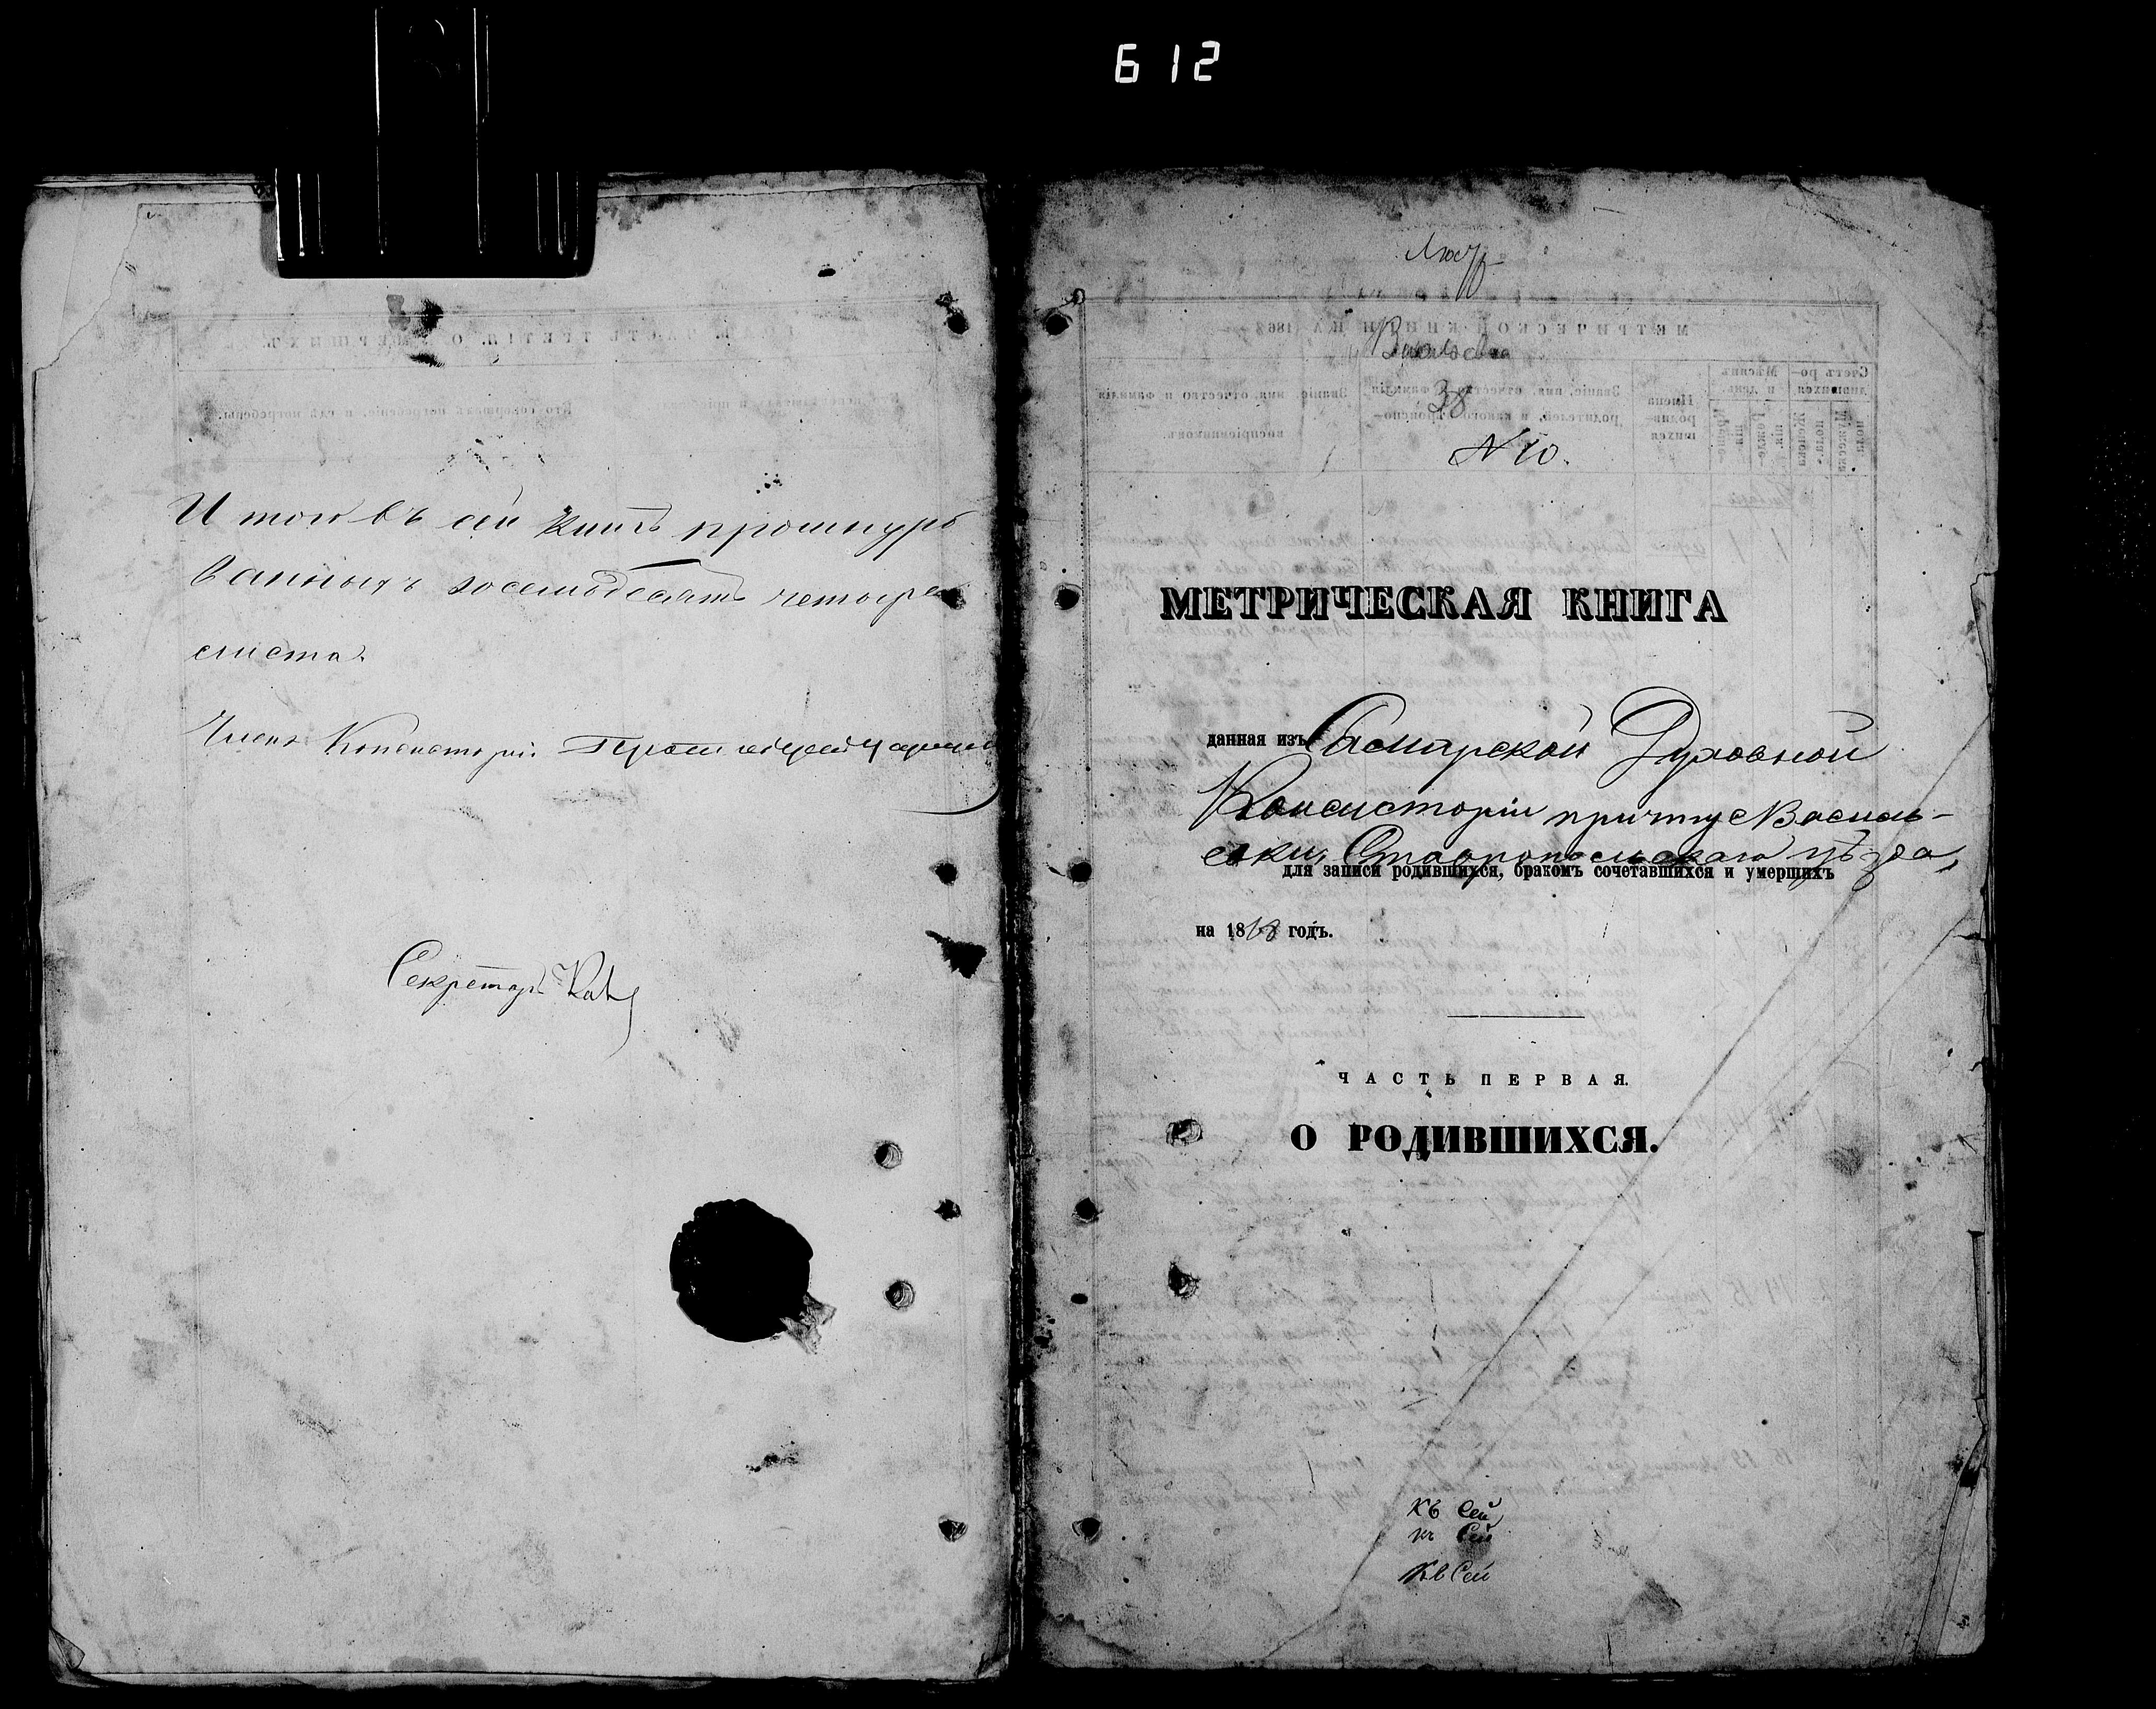 612
Итого въ сей книгѣ прошнуро
ванныхъ восемьдесятъ четыре
листа.
Членъ Консисторіи
Секретарь
Васильевка
38
№ 10.
МЕТРИЧЕСКАЯ КНИГА
данная изъ Самарской Духовной
Консисторіи причту с Василь-
евки, Ставропольскаго уѣзда,
для записи родившихся, бракомъ сочетавшихся и умершихъ
на 1868 годъ.
ЧАСТЬ ПЕРВАЯ.
О РОДИВШИХСЯ.
Къ Сей
къ Сей
Къ Сей